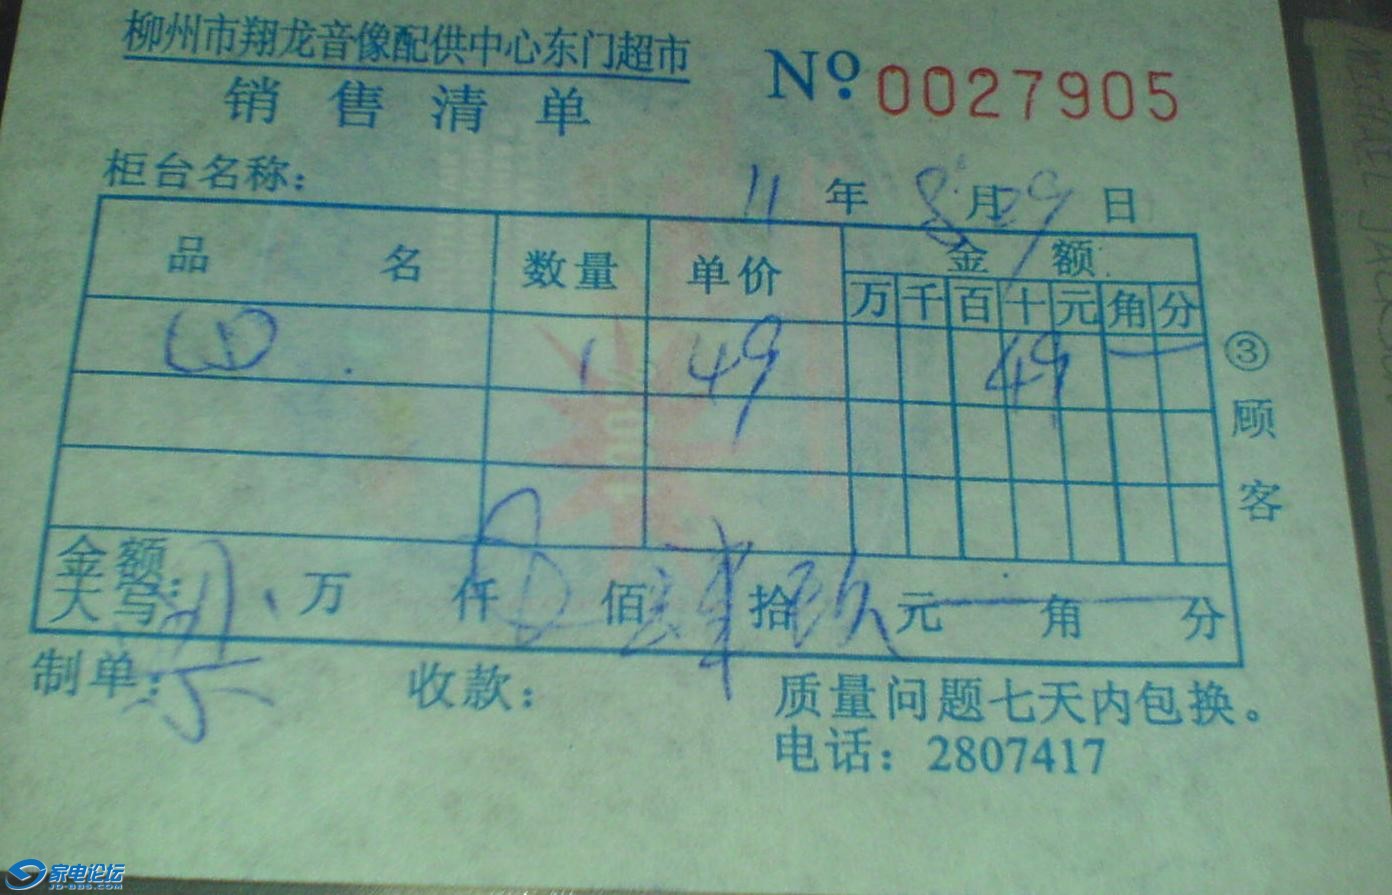 柳州市翔龙音像配供中心东门超市
销售清单
No. 0027905
柜台名称:
11 年 8 月 29 日
品名 数量 单价 金额
万 千 百 十 元 角 分
CD 1 49 49
③ 顾客
金额大写: 万 仟 佰 肆 拾 玖 元 角 分
制单: 收款:
质量问题七天内包换。
电话: 2807417
家电论坛
JD-BBS.COM